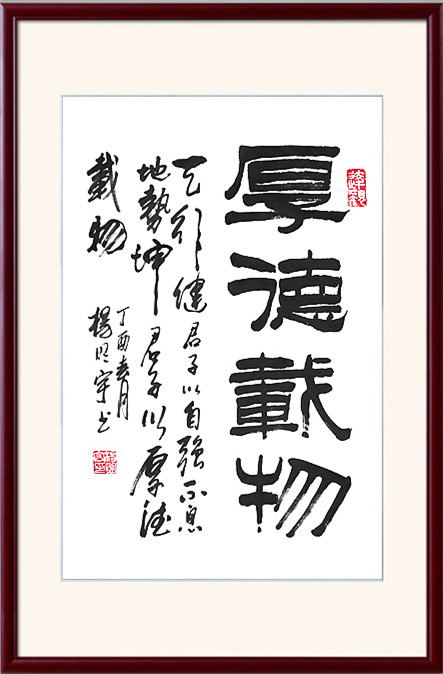 厚德載物
天行健君子以自強不息
地勢坤君子以厚德
載物
丁酉春月
楊明宇书